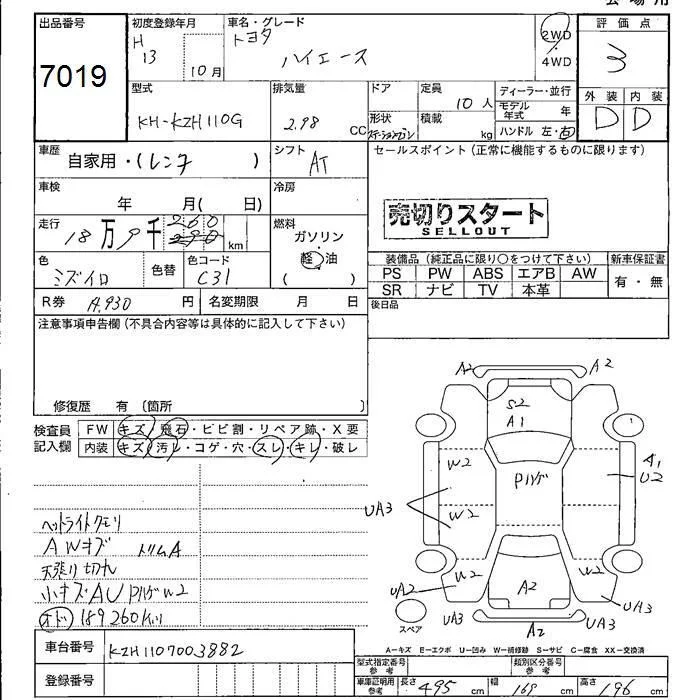 会場用
出品番号
7019
初度登録年月
H
13
10月
車名・グレード
トヨタ
ハイエース
2WD
4WD
評価点
3
外装 内装
D D
型式
KH-KZH110G
排気量
2.98 CC
ドア
形状
ステーションワゴン
定員
10 人
積載
kg
ディーラー・並行
モデル年式 年
ハンドル 左・右
車歴
自家用・(レンタ )
シフト
AT
セールスポイント(正常に機能するものに限ります)
売切りスタート
SELLOUT
車検
年 月( 日)
冷房
走行
18万9千260
290
km
燃料
ガソリン
軽・油
( )
色
ミズイロ
色替
色コード
C31
装備品(純正品に限り○をつけて下さい)
新車保証書
PS PW ABS エアB AW
SR ナビ TV 本革
有・無
R券 A.930 円
名変期限 月 日
後日品
注意事項申告欄(不具合内容等は具体的に記入して下さい)
修復歴 有 〔箇所 〕
検査員
記入欄
FW キズ・飛石・ヒビ割・リペア跡・X要
内装 キズ・汚レ・コゲ・穴・スレ・キレ・破レ
ヘッドライトクモリ
AWキズ トリムA
天張り切れ
小キズ・AU PハゲW2
オド 189260Km
車台番号
KZH1107003882
登録番号
A2
A2
S2
A1
W2
Pハゲ
A1
U2
UA3
W2
W2
W2
UA2
A2
UA3
UA3
A2
UA3
スペア
A−キズ E−エクボ U−凹み W−補修跡 S−サビ C−腐食 XX−交換済
型式指定番号
参考
類別区分番号
参考
車庫証明用
参考
長さ 495 cm
幅 169 cm
高さ 196 cm